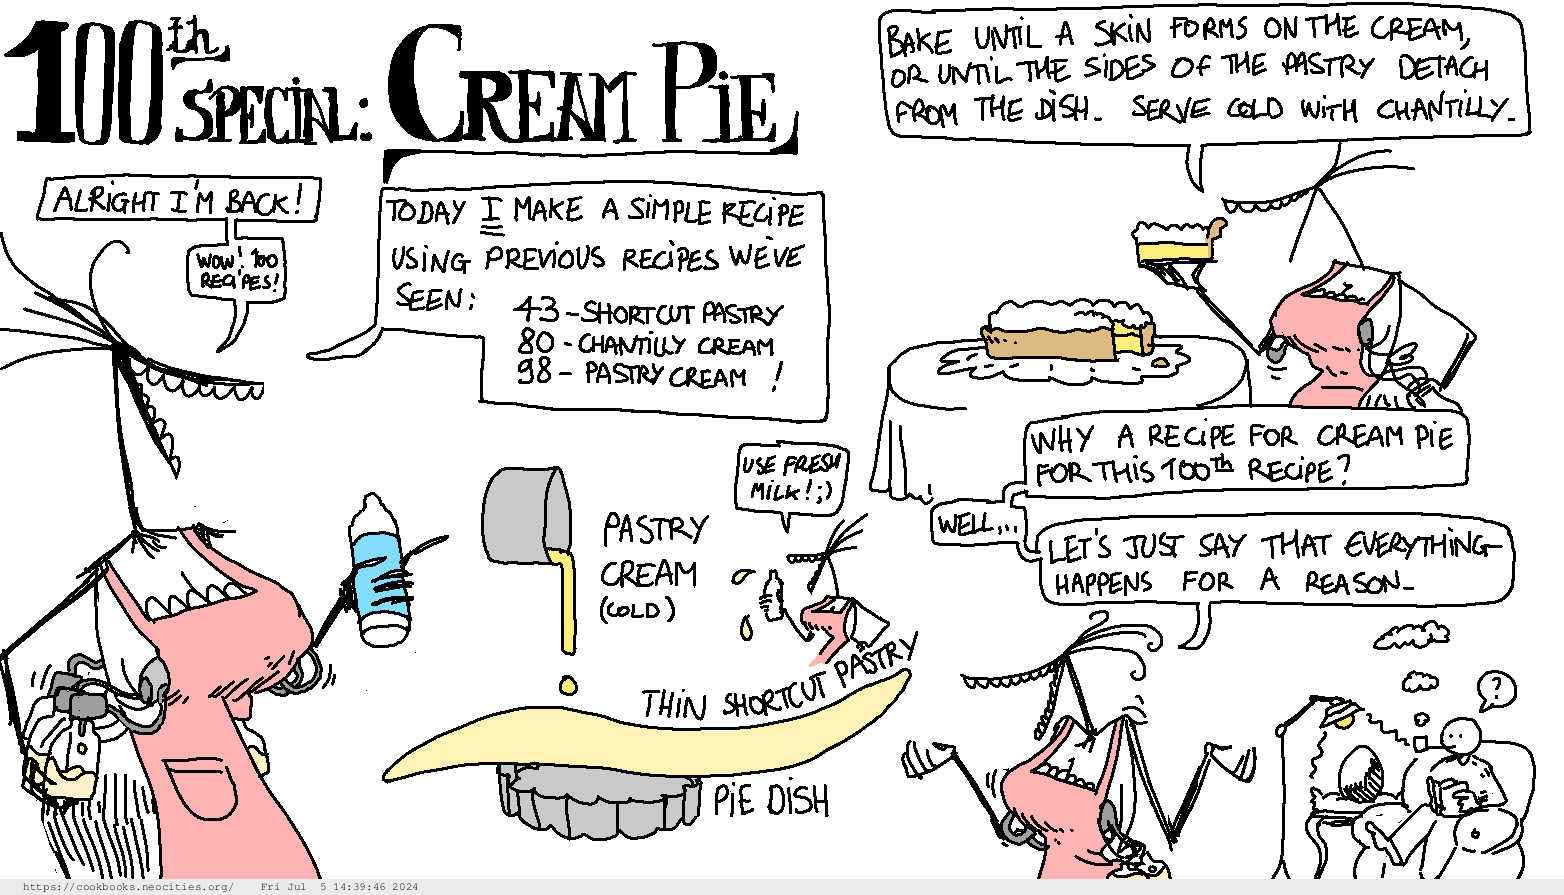 100th
SPECIAL: CREAM PIE
ALRIGHT I'M BACK!
WOW! 100
RECIPES!
TODAY I MAKE A SIMPLE RECIPE
USING PREVIOUS RECIPES WE'VE
SEEN:
43 - SHORTCUT PASTRY
80 - CHANTILLY CREAM
98 - PASTRY CREAM !
PASTRY
CREAM
(COLD)
USE FRESH
MILK! ;)
THIN SHORTCUT PASTRY
PIE DISH
BAKE UNTIL A SKIN FORMS ON THE CREAM,
OR UNTIL THE SIDES OF THE PASTRY DETACH
FROM THE DISH. SERVE COLD WITH CHANTILLY.
WHY A RECIPE FOR CREAM PIE
FOR THIS 100th RECIPE?
WELL...
LET'S JUST SAY THAT EVERYTHING
HAPPENS FOR A REASON.
?
https://cookbooks.neocities.org/ Fri Jul 5 14:39:46 2024